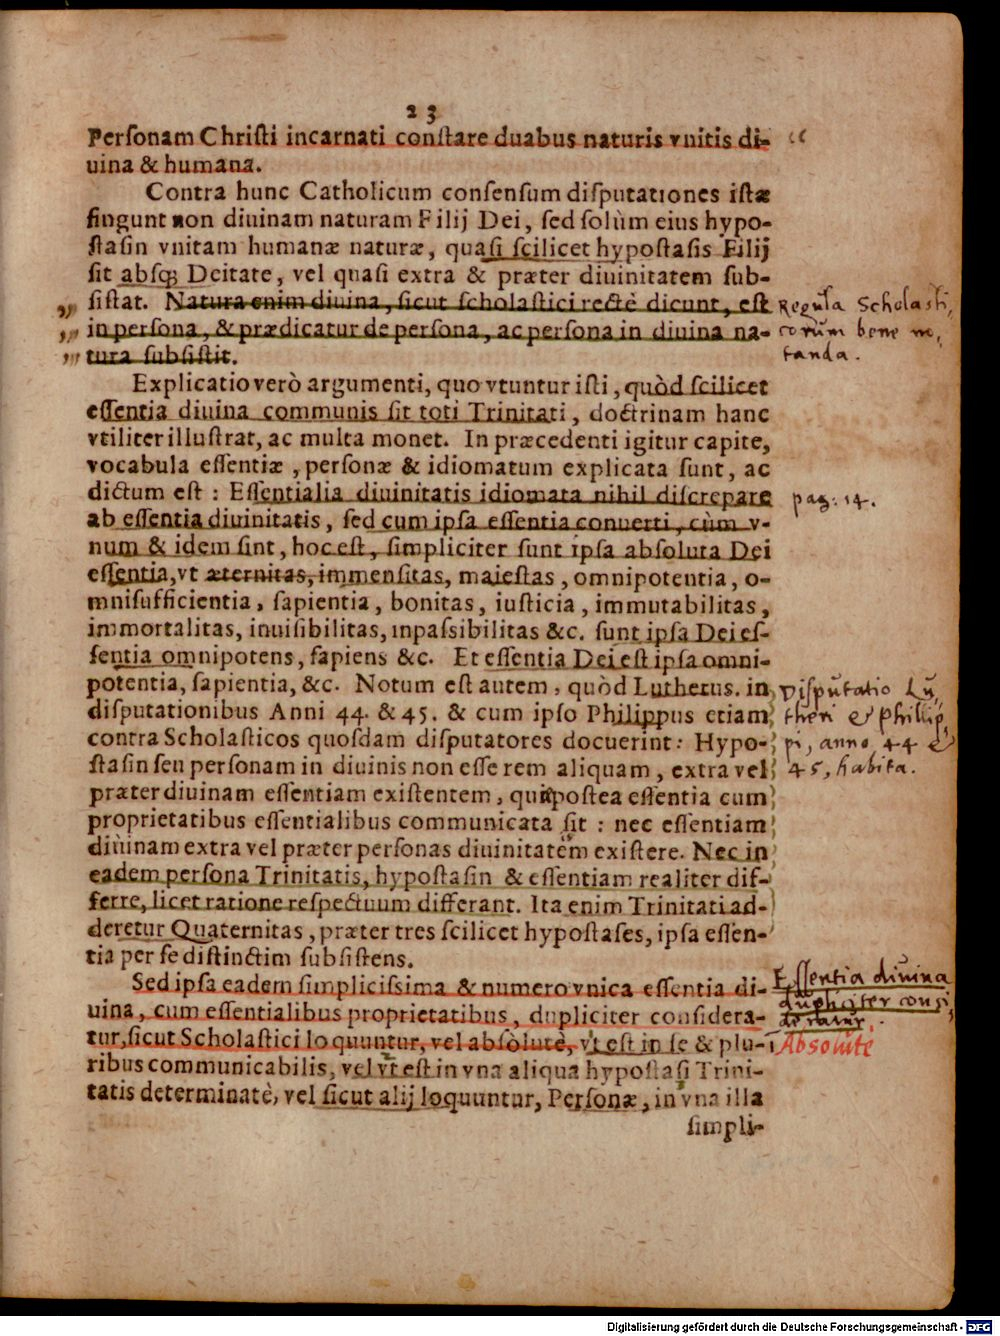 23
Personam Christi incarnati constare duabus naturis vnitis di-
uina & humana.
Contra hunc Catholicum consensum disputationes istæ
fingunt non diuinam naturam Filij Dei, sed solùm eius hypo-
stasin vnitam humanæ naturæ, quasi scilicet hypostasis Filij
sit absq; Deitate, vel quasi extra & præter diuinitatem sub-
sistat. Natura enim diuina, sicut scholastici rectè dicunt, est
in persona, & prædicatur de persona, ac persona in diuina na-
tura subsistit.
Regula Scholasti,
corum bene no,
tanda.
Explicatio verò argumenti, quo vtuntur isti, quòd scilicet
essentia diuina communis sit toti Trinitati, doctrinam hanc
vtiliter illustrat, ac multa monet. In præcedenti igitur capite,
vocabula essentiæ, personæ & idiomatum explicata sunt, ac
dictum est: Essentialia diuinitatis idiomata nihil discrepare
ab essentia diuinitatis, sed cum ipsa essentia conuerti, cùm v-
num & idem sint, hoc est, simpliciter sunt ipsa absoluta Dei
essentia, vt æternitas, immensitas, maiestas, omnipotentia, o-
mnisufficientia, sapientia, bonitas, iusticia, immutabilitas,
immortalitas, inuisibilitas, inpassibilitas &c. sunt ipsa Dei es-
sentia omnipotens, sapiens &c. Et essentia Dei est ipsa omni-
potentia, sapientia, &c. Notum est autem, quòd Lutherus. in
disputationibus Anni 44. & 45. & cum ipso Philippus etiam
contra Scholasticos quosdam disputatores docuerint: Hypo-
stasin seu personam in diuinis non esse rem aliquam, extra vel
præter diuinam essentiam existentem, qui postea essentia cum
proprietatibus essentialibus communicata sit: nec essentiam
diuinam extra vel præter personas diuinitatem existere. Nec in
eadem persona Trinitatis, hypostasin & essentiam realiter dif-
ferre, licet ratione respectuum differant. Ita enim Trinitati ad-
deretur Quaternitas, præter tres scilicet hypostases, ipsa essen-
tia per se distinctim subsistens.
pag. 14.
Disputatio Lu,
theri & Philip,
pi, anno 44 &
45, habita.
Sed ipsa eadem simplicissima & numero vnica essentia di-
uina, cum essentialibus proprietatibus, dupliciter considera-
tur, sicut Scholastici loquuntur, vel absolutè, vt est in se & plu-
ribus communicabilis, vel vt est in vna aliqua hypostasi Trini-
tatis determinatè, vel sicut alij loquuntur, Personæ, in vna illa
simpli-
Essentia diuina
dupliciter consi,
deratur.
Absolutè
Digitalisierung gefördert durch die Deutsche Forschungsgemeinschaft - DFG